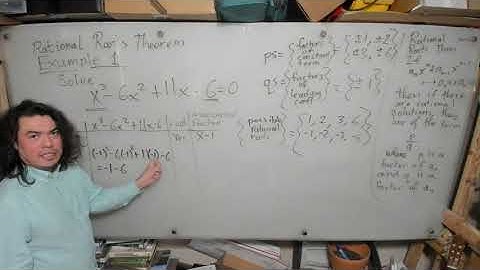 Rational Roots Theorem
Example 1
Solve
x³-6x²+11x-6=0
x | x³-6x²+11x-6 | root?
Yes x-1
(-1)³-6(-1)²+11(-1)-6
=-1-6
ps={factors of constant term}={±1, ±2, ±3, ±6}
qs={factors of leading coeff}={±1}
{possible rational roots}={1, 2, 3, 6, -1, -2, -3, -6}
Rational Roots Thm
If
then if there are rational solutions, they are of the form
p/q
where p is a factor of a₀
and q is a factor of aₙ